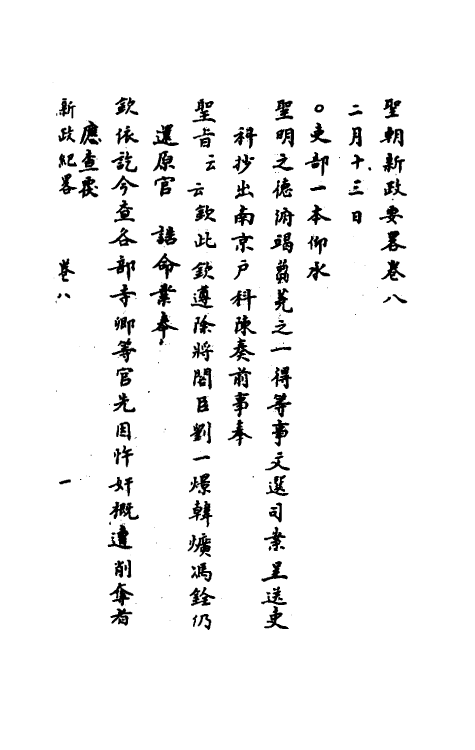 聖朝新政要畧卷八
二月十三日
○吏部一本仰承
聖明之德俯竭蒭蕘之一得等事文選司案呈送吏
科抄出南京戶科陳奏前事奉
聖旨云云欽此欽遵除將閣臣劉一燝韓爌馮銓仍
還原官 誥命業奉
欽依訖今查各部寺卿等官先因忤奸概遭削奪者
應查覆
新政紀畧 卷八 一